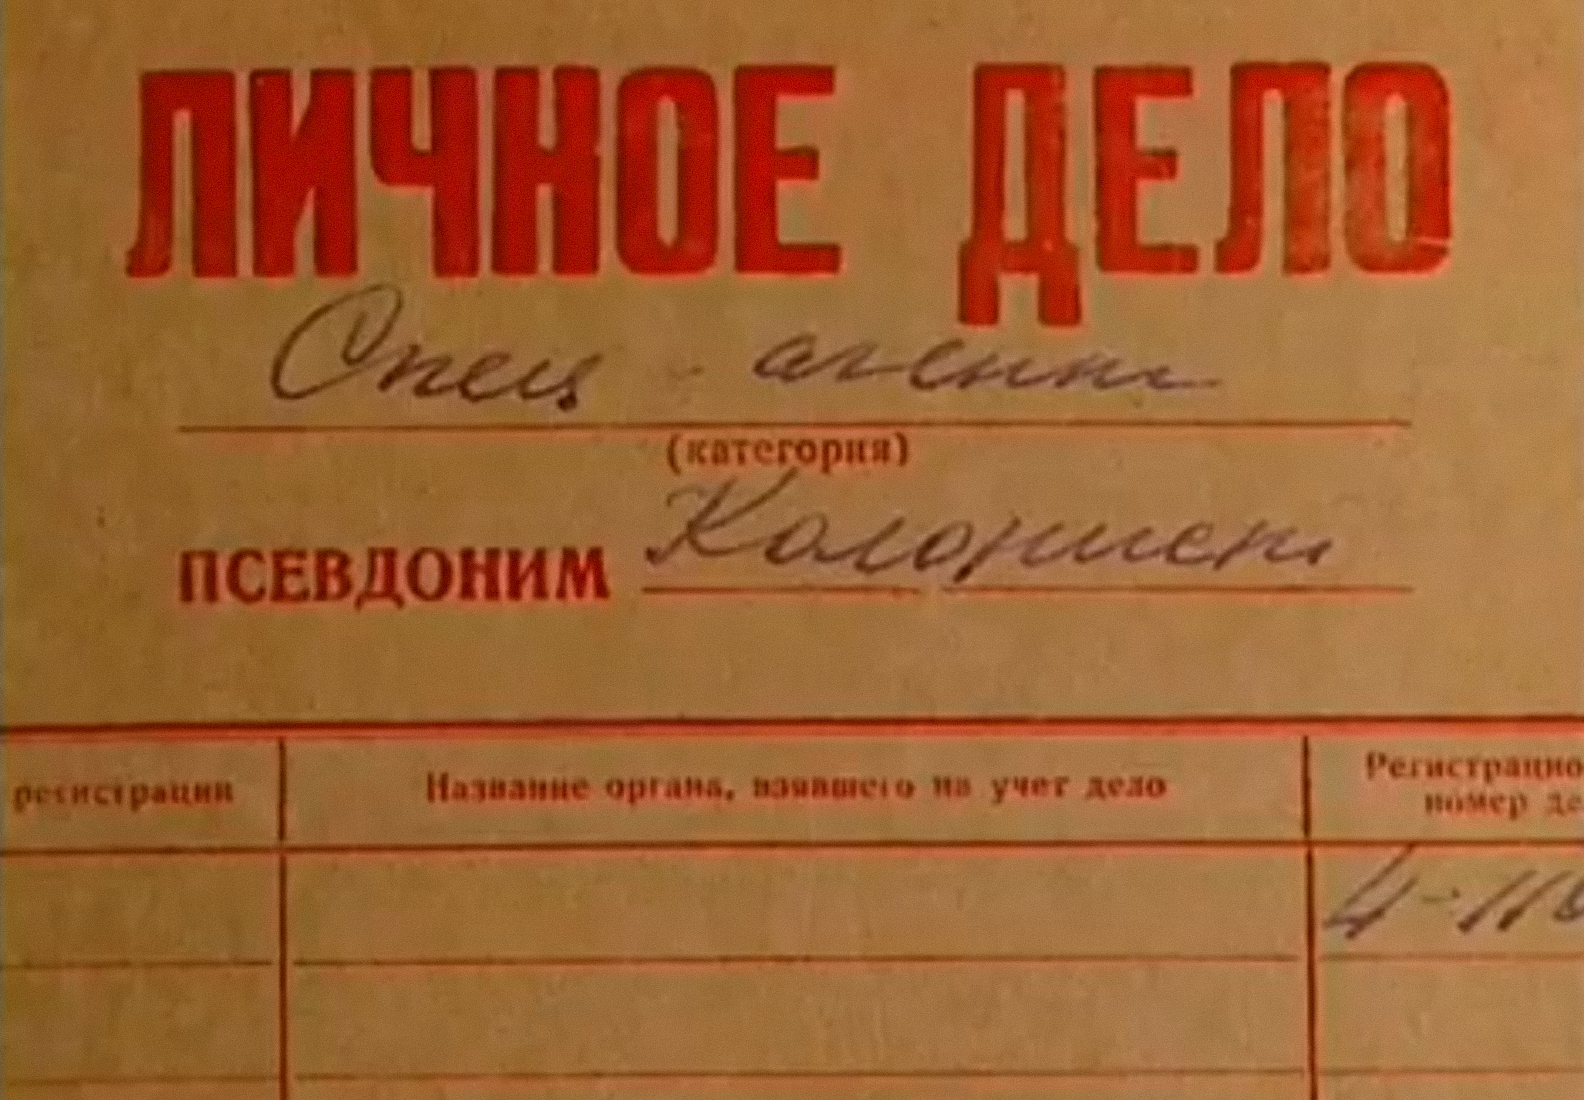 ЛИЧНОЕ ДЕЛО
Спец - агент
(категория)
ПСЕВДОНИМ Колонист
регистрации
Название органа, взявшего на учет дело
Регистрацио
номер де
4-110